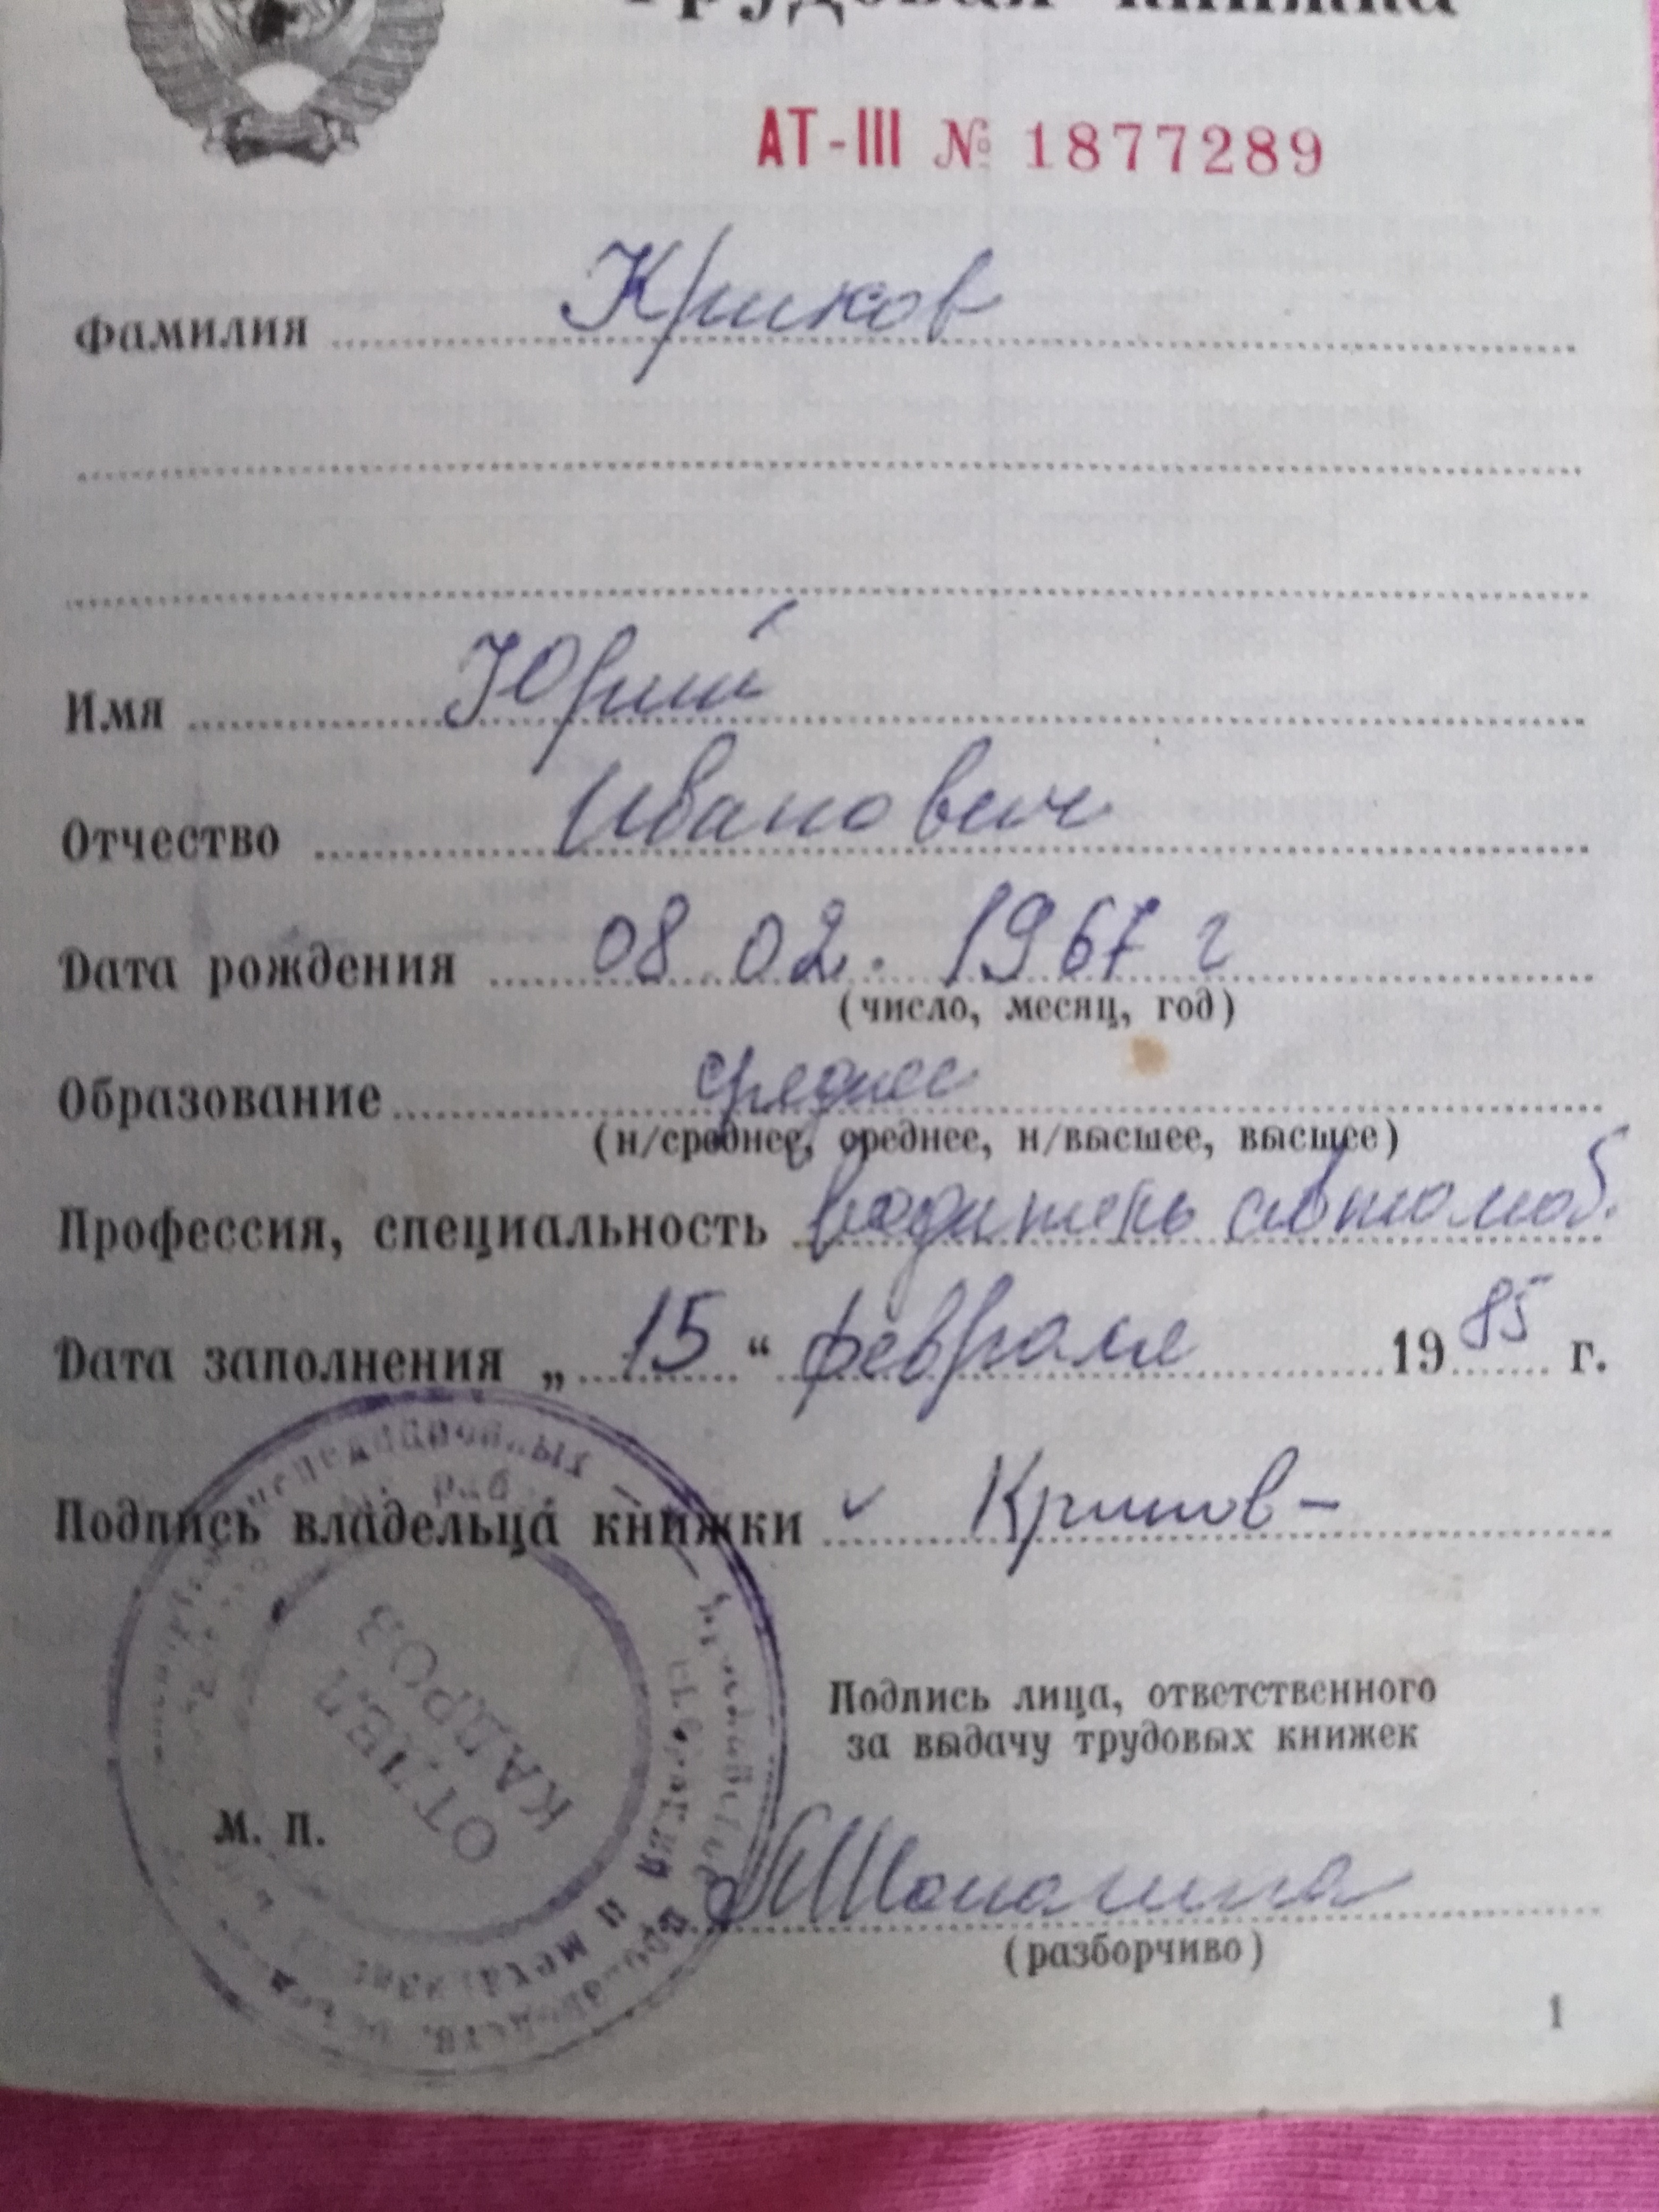 Трудовая книжка
АТ-III № 1877289
Фамилия Криков
Имя Юрий
Отчество Иванович
Дата рождения 08 02. 1967 г
(число, месяц, год)
Образование среднее
(н/среднее, среднее, н/высшее, высшее)
Профессия, специальность водитель автомоб.
Дата заполнения „15“ февраля 1985 г.
Подпись владельца книжки ✓ Криков-
ОТДЕЛ
КАДРОВ
Подпись лица, ответственного
за выдачу трудовых книжек
М. П.
(разборчиво)
1